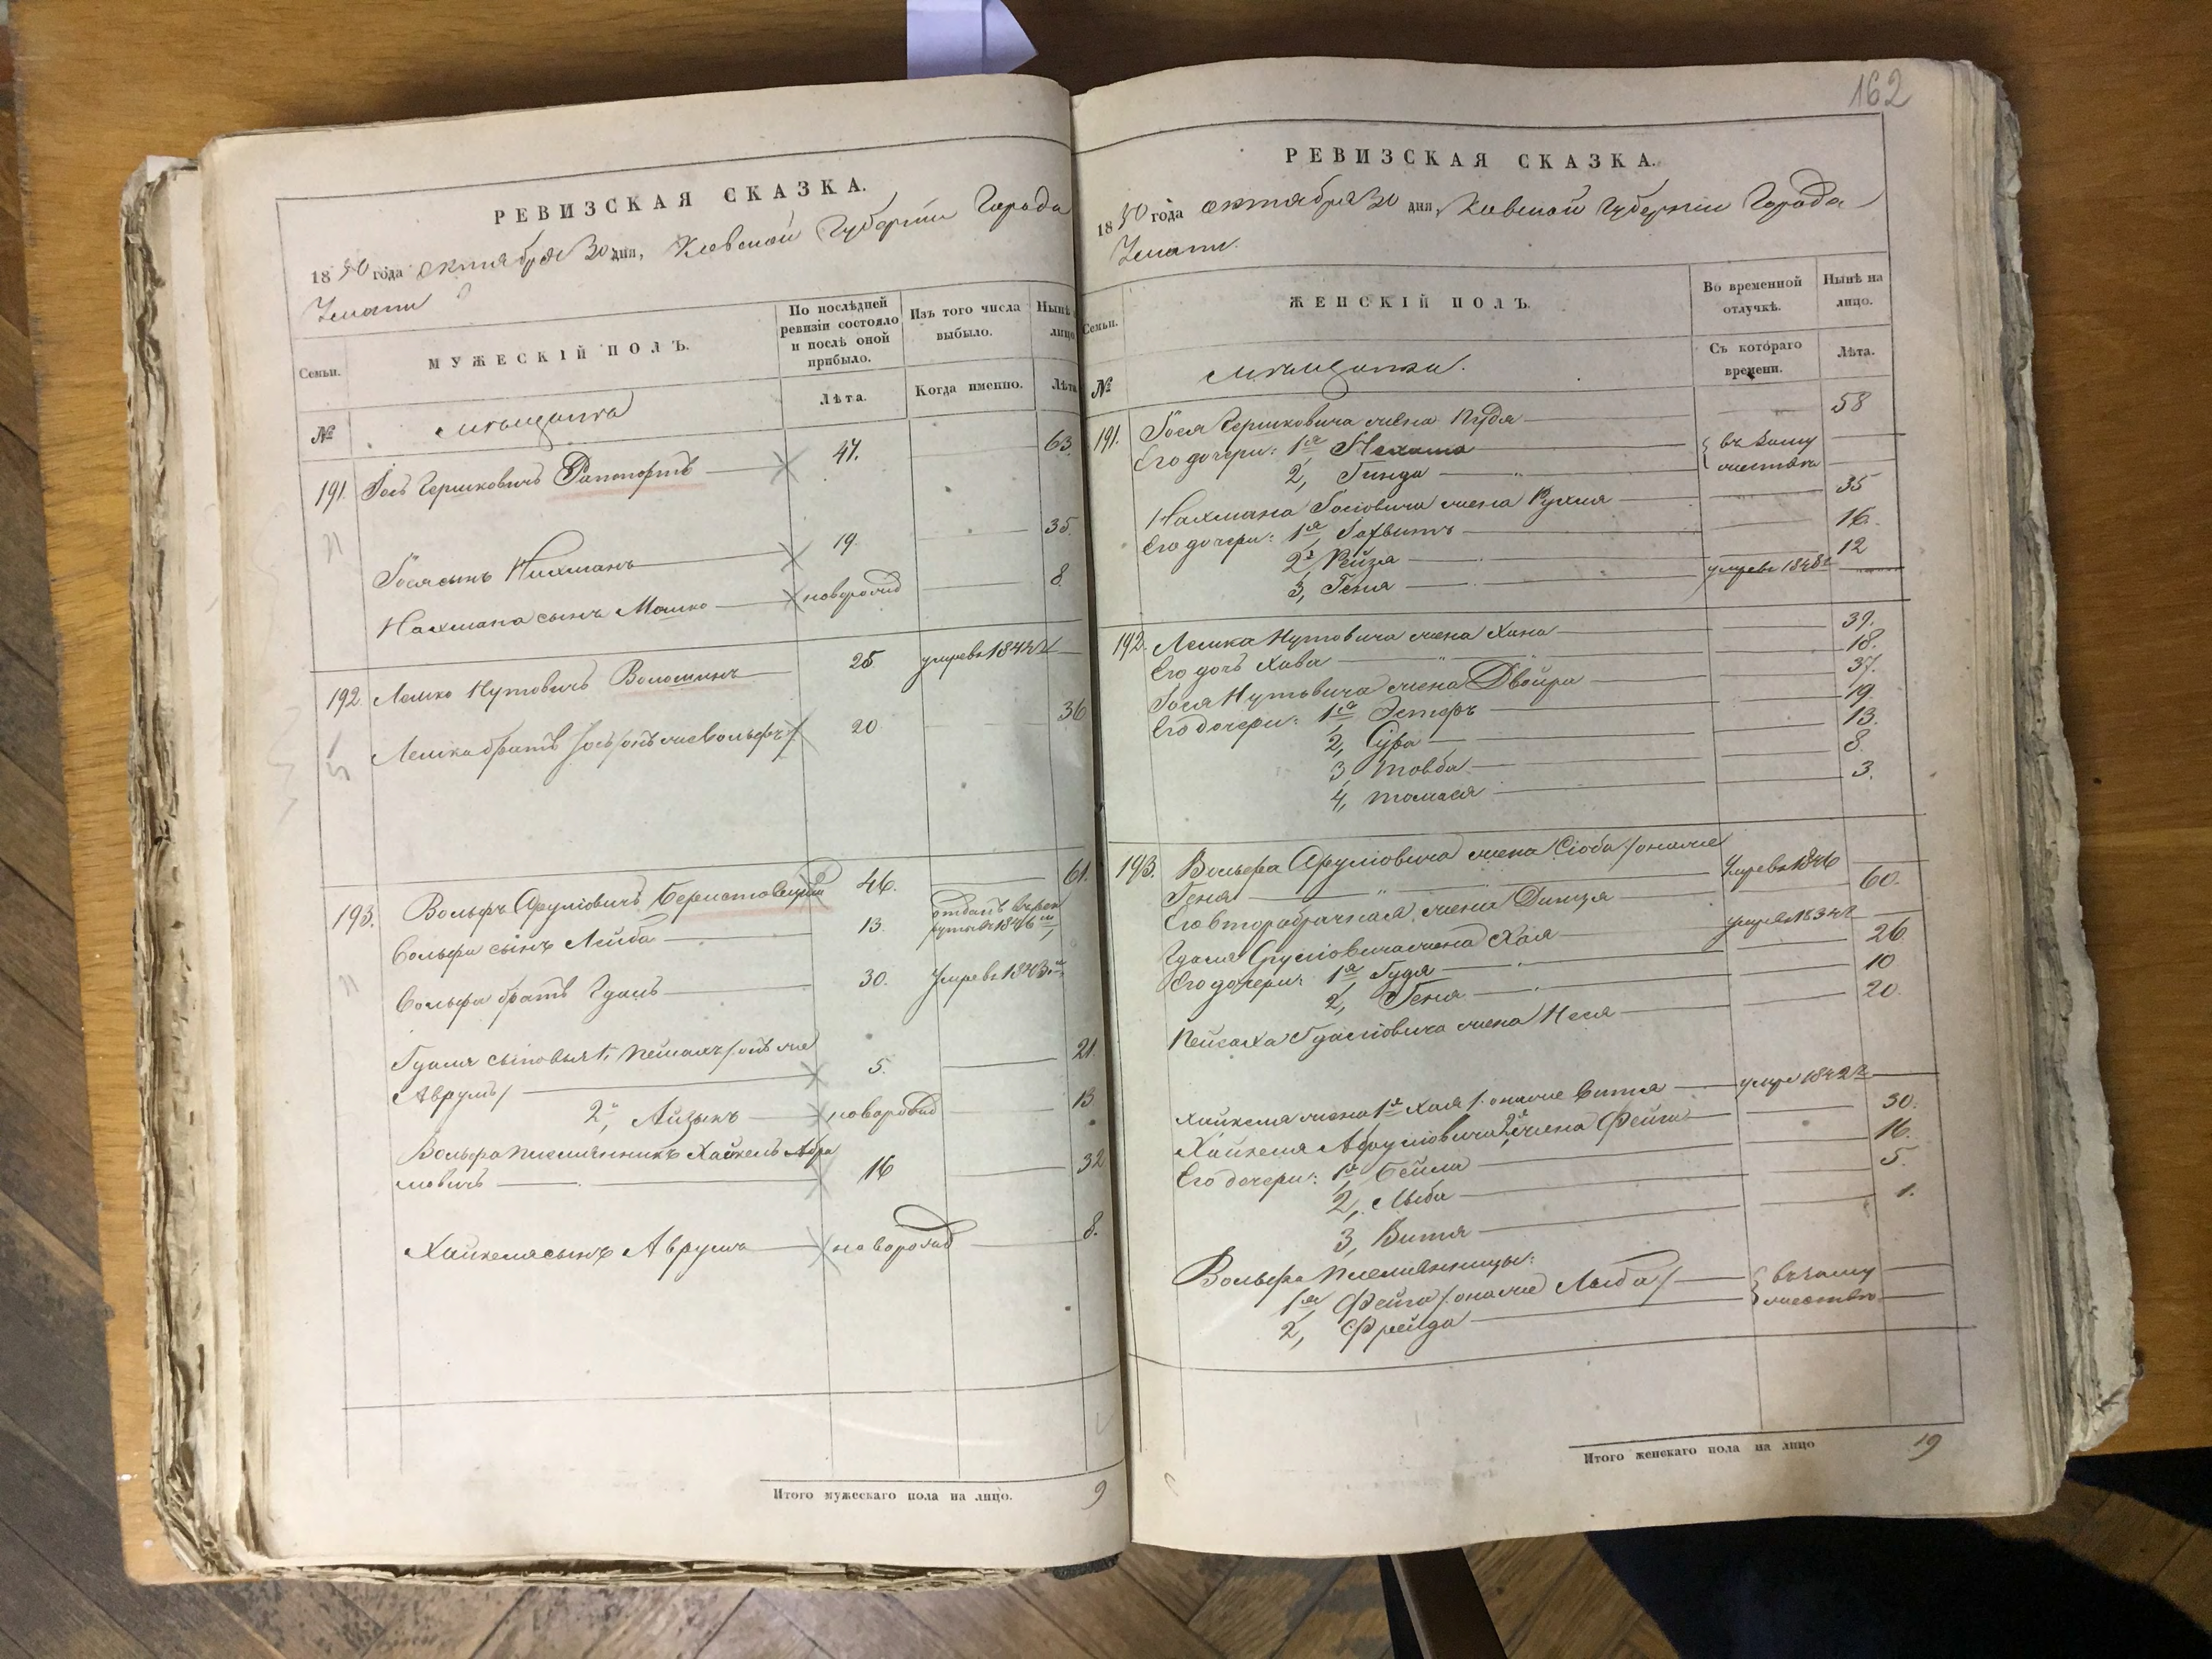 РЕВИЗСКАЯ СКАЗКА.
1850 года октября 30 дня, Киевской Губернии Города
Умани
Семьи.
МУЖЕСКІЙ ПОЛЪ.
По послѣдней ревизіи состояло и послѣ оной прибыло.
Изъ того числа выбыло.
Нынѣ лицо
№
мѣщане
Лѣта.
Когда именно.
Лѣта
191. Іось Гершковичъ Рапопортъ 47. 63.
Іося сынъ Нахманъ 19. 35.
Нахмана сынъ Мошко новорожд 8.
192. Лейко Нутовичъ Волошинъ 25 умре въ 1842 г
Лейка братъ Іось /онъ же Вольфъ/ 20 36
193. Вольфъ Аруліовичъ 46. 61.
Вольфа сынъ Лейба 13. отданъ въ рекруты въ 1846 г.
Вольфа братъ Гдаль 30. Умре въ 1843 г.
Гдаля сыновья 1, Пейсахъ /онъ же
Аврумъ/ 5. 21.
2, Айзыкъ новорожд 13
Вольфа племянникъ Хайкель Абра
мовичъ 16 32
Хайкеля сынъ Аврумъ новорожд 8.
Итого мужескаго пола на лицо. 9
162
РЕВИЗСКАЯ СКАЗКА.
1850 года октября 30 дня, Киевской Губернии Города
Умани.
Семьи.
ЖЕНСКІЙ ПОЛЪ.
Во временной отлучкѣ.
Нынѣ на лицо.
№
мѣщанки.
Съ котораго времени.
Лѣта.
191. Іося Гершковича жена Худя 58
Его дочери: 1я Нехама въ заму
2, Гинда жествѣ
Нахмана Іосіовича жена Рухля 35
Его дочери: 1я 16.
2я Рейзя 12
3, Геня умре въ 1848 г
192. Лейка Нутовича жена Хана 39.
Его дочь Хава 18.
Іося Нутовича жена Двойра 37.
Его дочери: 1я Эстеръ 19.
2, Сура 13.
3, Товба 8.
4, 3.
193. Вольфа Аруліовича жена Сіоба /она же
Геня умре въ 1846
Его второбрачная жена Динзя 60.
Гдаля Аруліовича жена Хая умре въ 1834 г
Его дочери: 1я Гудя 26.
2, Геня 10
Пейсаха Гдаліовича жена Неся 20.
Хайкеля жена 1я Хая /она же Витя умре 1842 г
Хайкеля Абрумовича 2я жена Фейга 30.
Его дочери: 1я Бейла 16.
2, Лыба 5.
3, Витя 1.
Вольфа племянницы:
1я Фейга /она же Лыба/ въ заму
2, Фрейда жествѣ
Итого женскаго пола на лицо 19